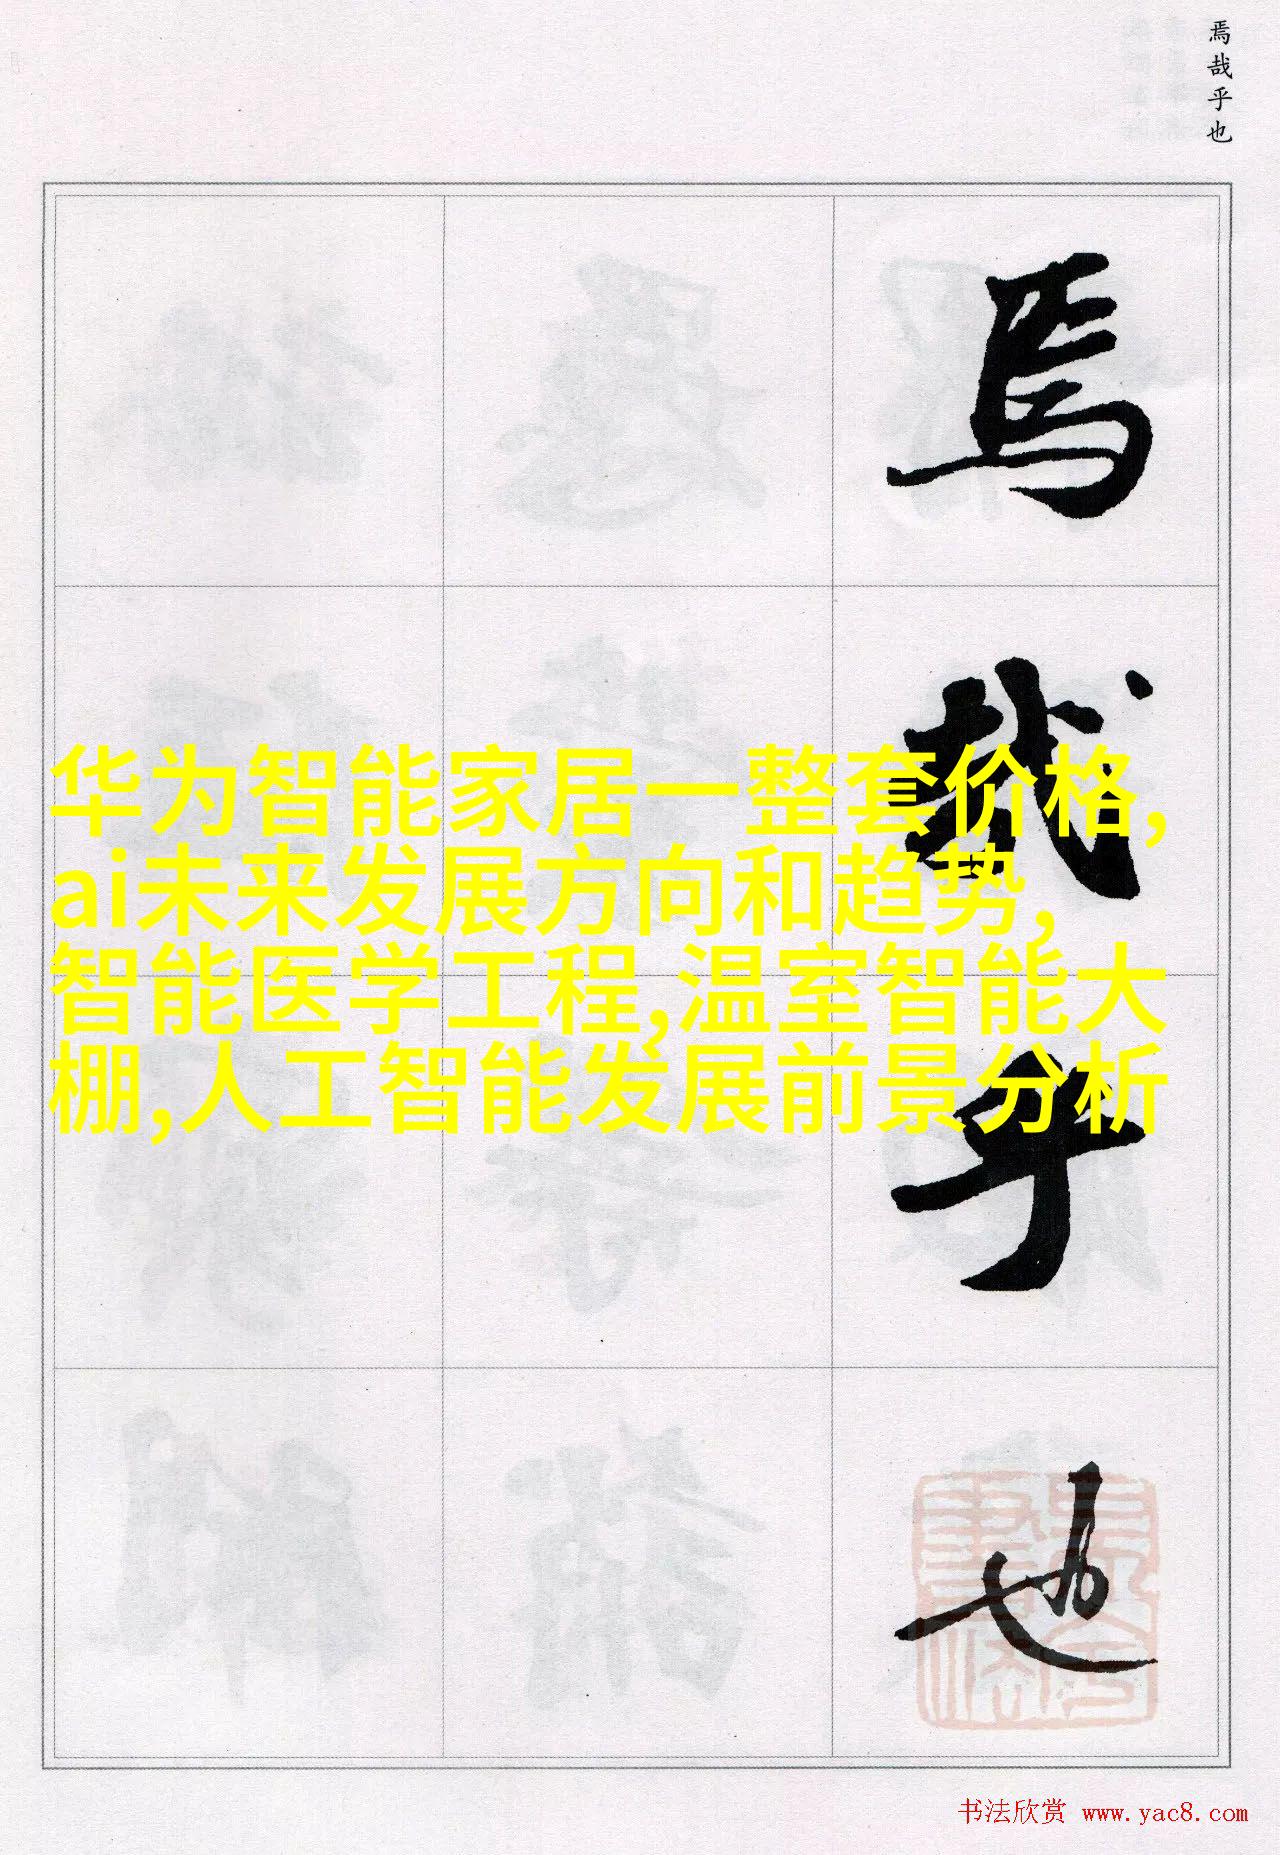 焉哉乎也
焉
哉
乎
也
华为智能家居一整套价格,
ai未来发展方向和趋势,
智能医学工程,温室智能大
棚,人工智能发展前景分析
书法欣赏 www.yac8.com